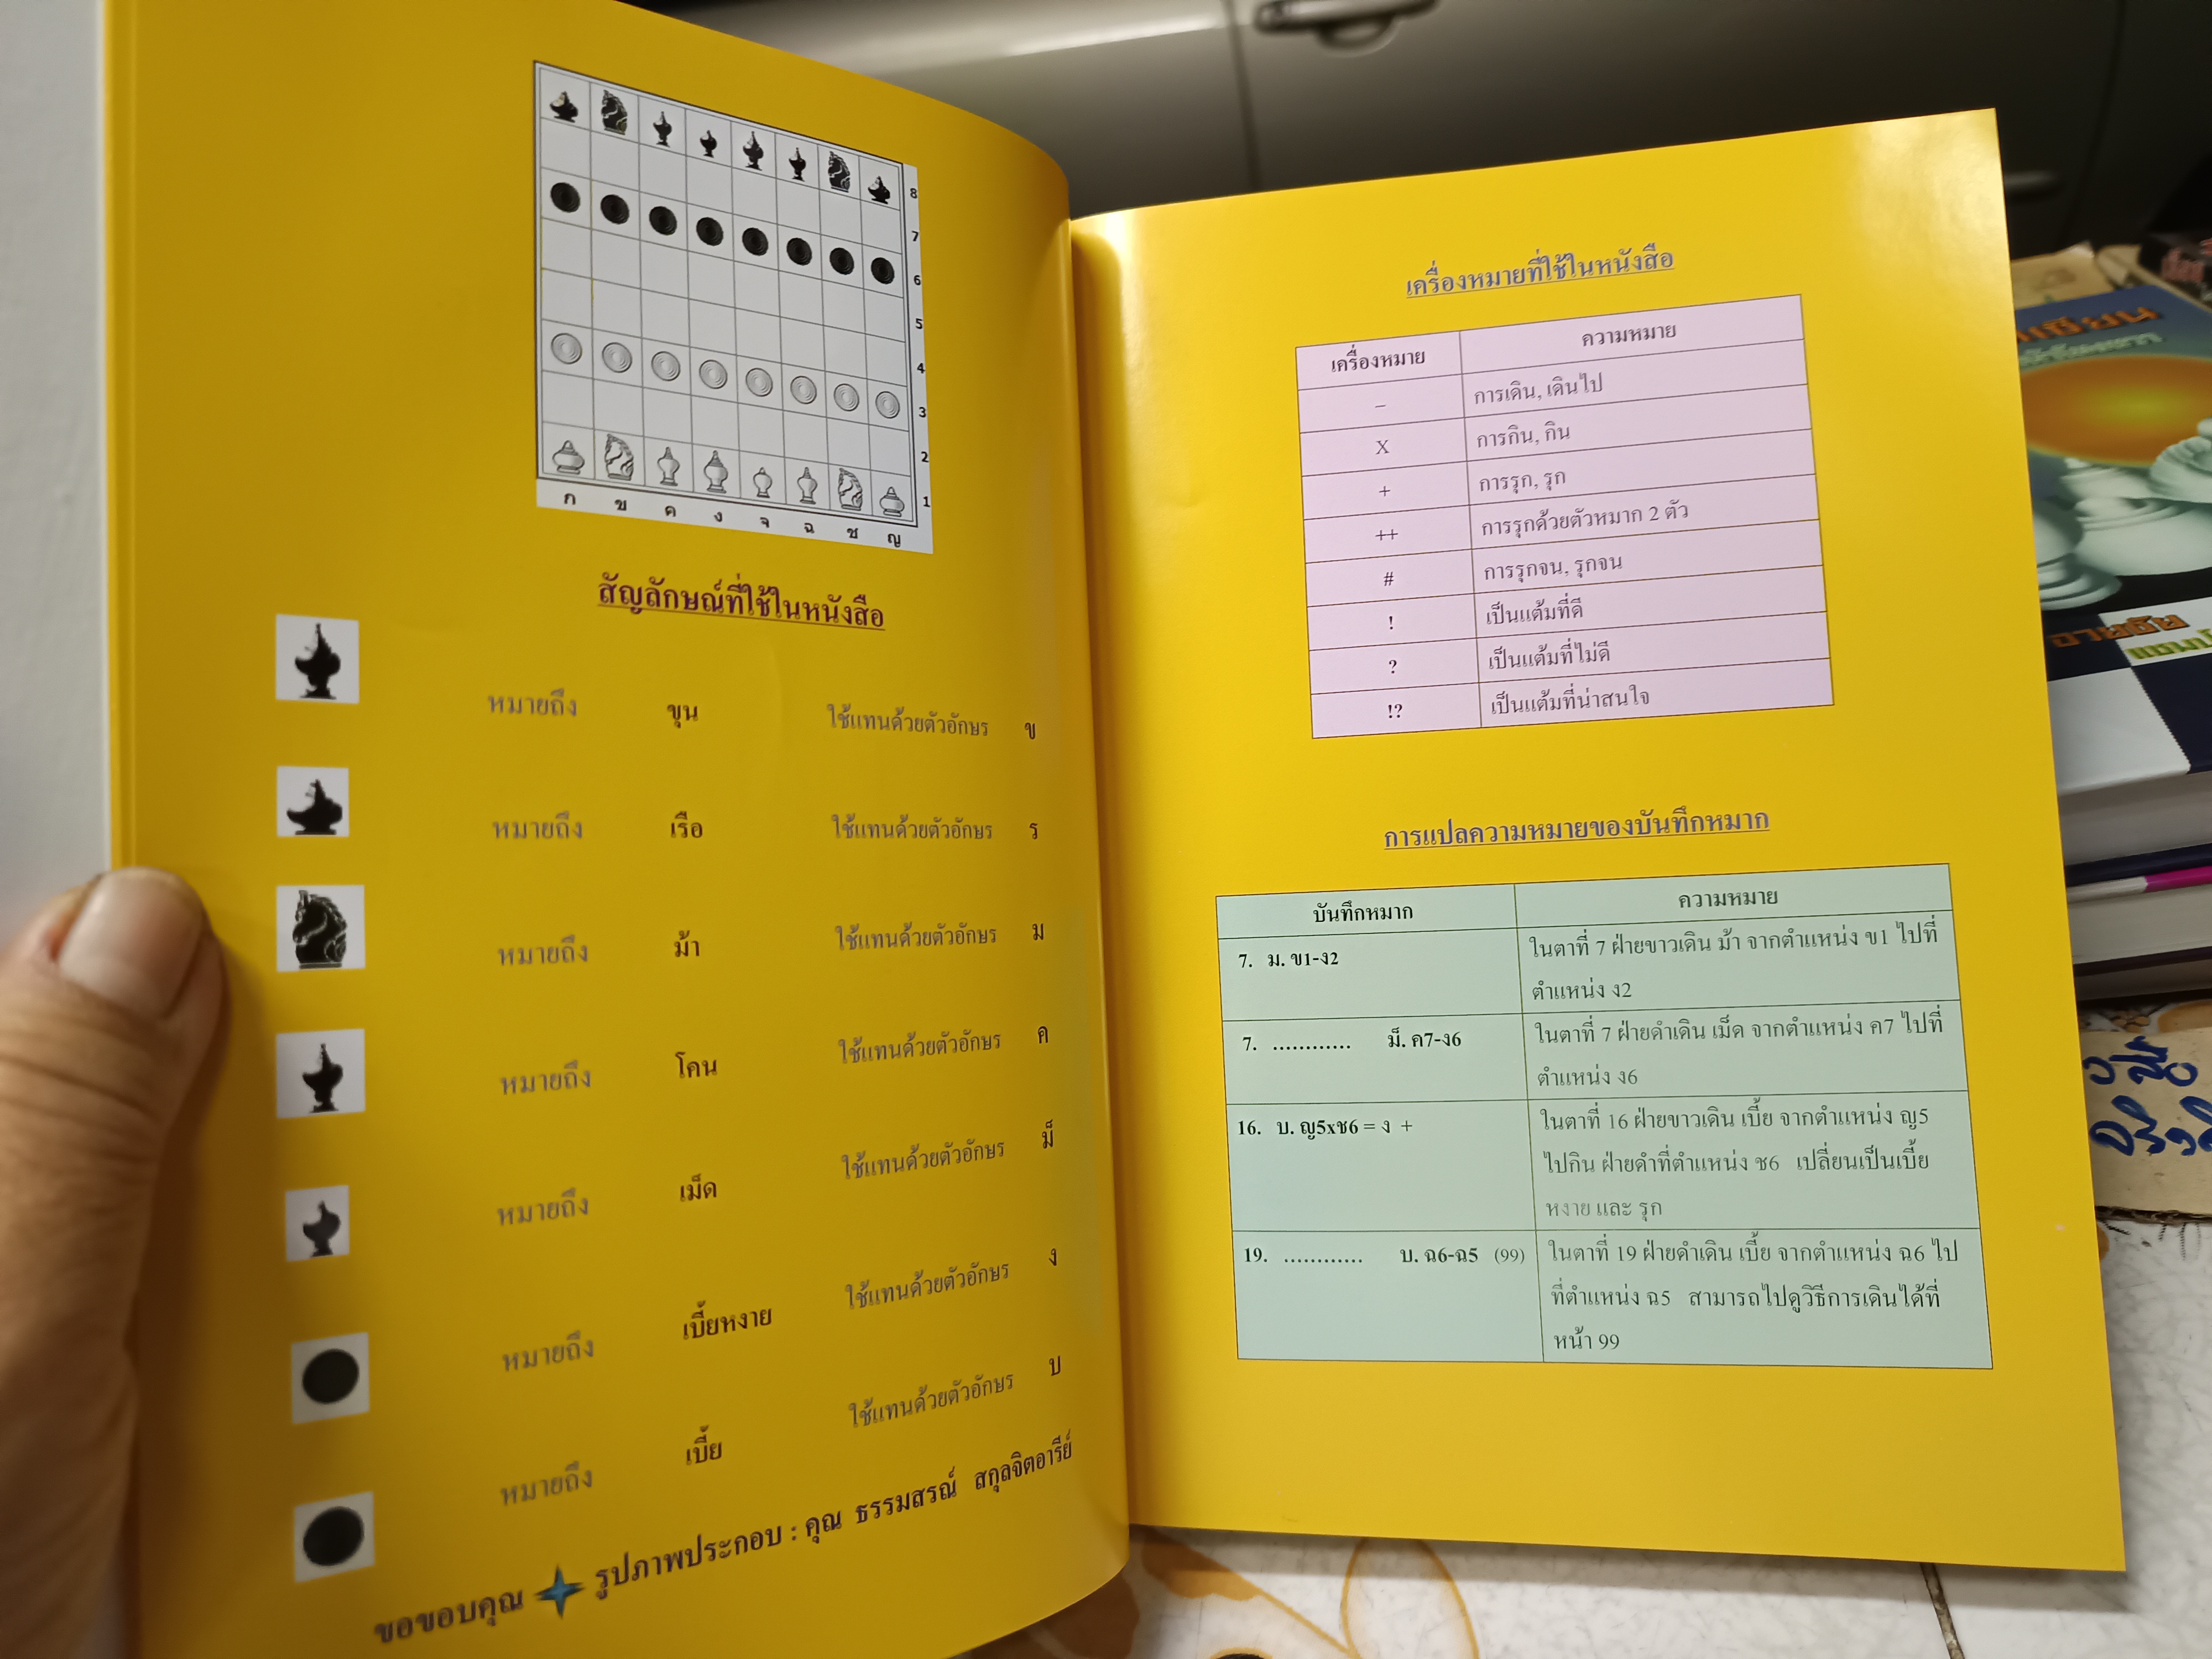 8
7
6
5
4
3
2
1
ก ข ค ง จ ฉ ช ญ
สัญลักษณ์ที่ใช้ในหนังสือ
หมายถึง ขุน ใช้แทนด้วยตัวอักษร ข
หมายถึง เรือ ใช้แทนด้วยตัวอักษร ร
หมายถึง ม้า ใช้แทนด้วยตัวอักษร ม
หมายถึง โคน ใช้แทนด้วยตัวอักษร ค
หมายถึง เม็ด ใช้แทนด้วยตัวอักษร ม็
หมายถึง เบี้ยหงาย ใช้แทนด้วยตัวอักษร ง
หมายถึง เบี้ย ใช้แทนด้วยตัวอักษร บ
ขอขอบคุณ รูปภาพประกอบ : คุณ ธรรมสรณ์ สกุลจิตอารีย์
เครื่องหมายที่ใช้ในหนังสือ
เครื่องหมาย ความหมาย
– การเดิน, เดินไป
X การกิน, กิน
+ การรุก, รุก
++ การรุกด้วยตัวหมาก 2 ตัว
# การรุกจน, รุกจน
! เป็นแต้มที่ดี
? เป็นแต้มที่ไม่ดี
!? เป็นแต้มที่น่าสนใจ
การแปลความหมายของบันทึกหมาก
บันทึกหมาก ความหมาย
7. ม. ข1-ง2 ในตาที่ 7 ฝ่ายขาวเดิน ม้า จากตำแหน่ง ข1 ไปที่
ตำแหน่ง ง2
7. ............ ม็. ค7-ง6 ในตาที่ 7 ฝ่ายดำเดิน เม็ด จากตำแหน่ง ค7 ไปที่
ตำแหน่ง ง6
16. บ. ญ5xช6 = ง + ในตาที่ 16 ฝ่ายขาวเดิน เบี้ย จากตำแหน่ง ญ5
ไปกิน ฝ่ายดำที่ตำแหน่ง ช6 เปลี่ยนเป็นเบี้ย
หงาย และ รุก
19. ............ บ. ฉ6-ฉ5 (99) ในตาที่ 19 ฝ่ายดำเดิน เบี้ย จากตำแหน่ง ฉ6 ไป
ที่ตำแหน่ง ฉ5 สามารถไปดูวิธีการเดินได้ที่
หน้า 99